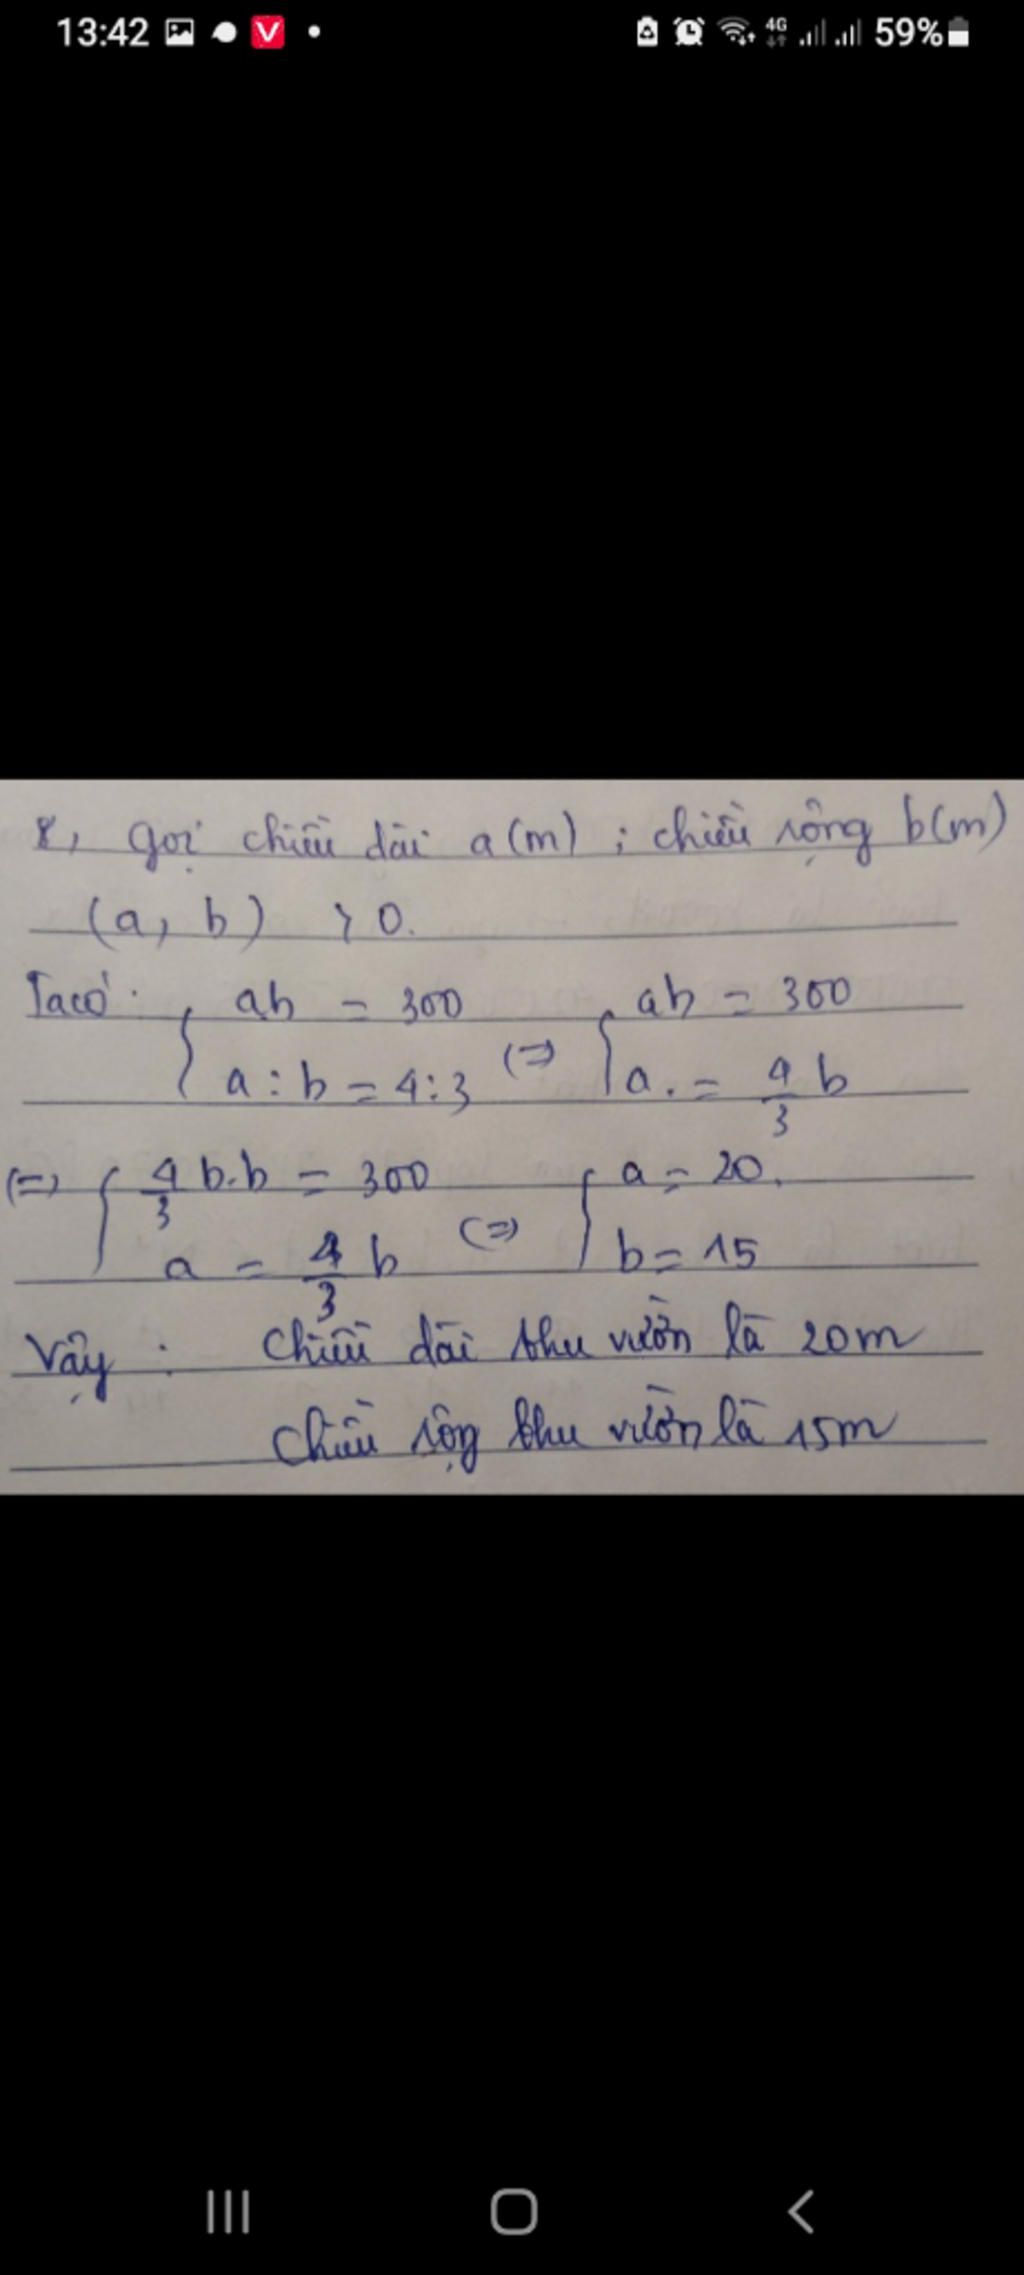 13:42 V 4G 59%
8, gọi chiều dài a (m) ; chiều rộng b(m)
(a, b) > 0.
Ta có : { ab = 300 (=) { ab = 300
a : b = 4 : 3 a. = 4/3 b
(=) { 4/3 b.b = 300 (=) { a = 20.
a = 4/3 b b = 15
Vậy : chiều dài khu vườn là 20m
chiều rộng khu vườn là 15m